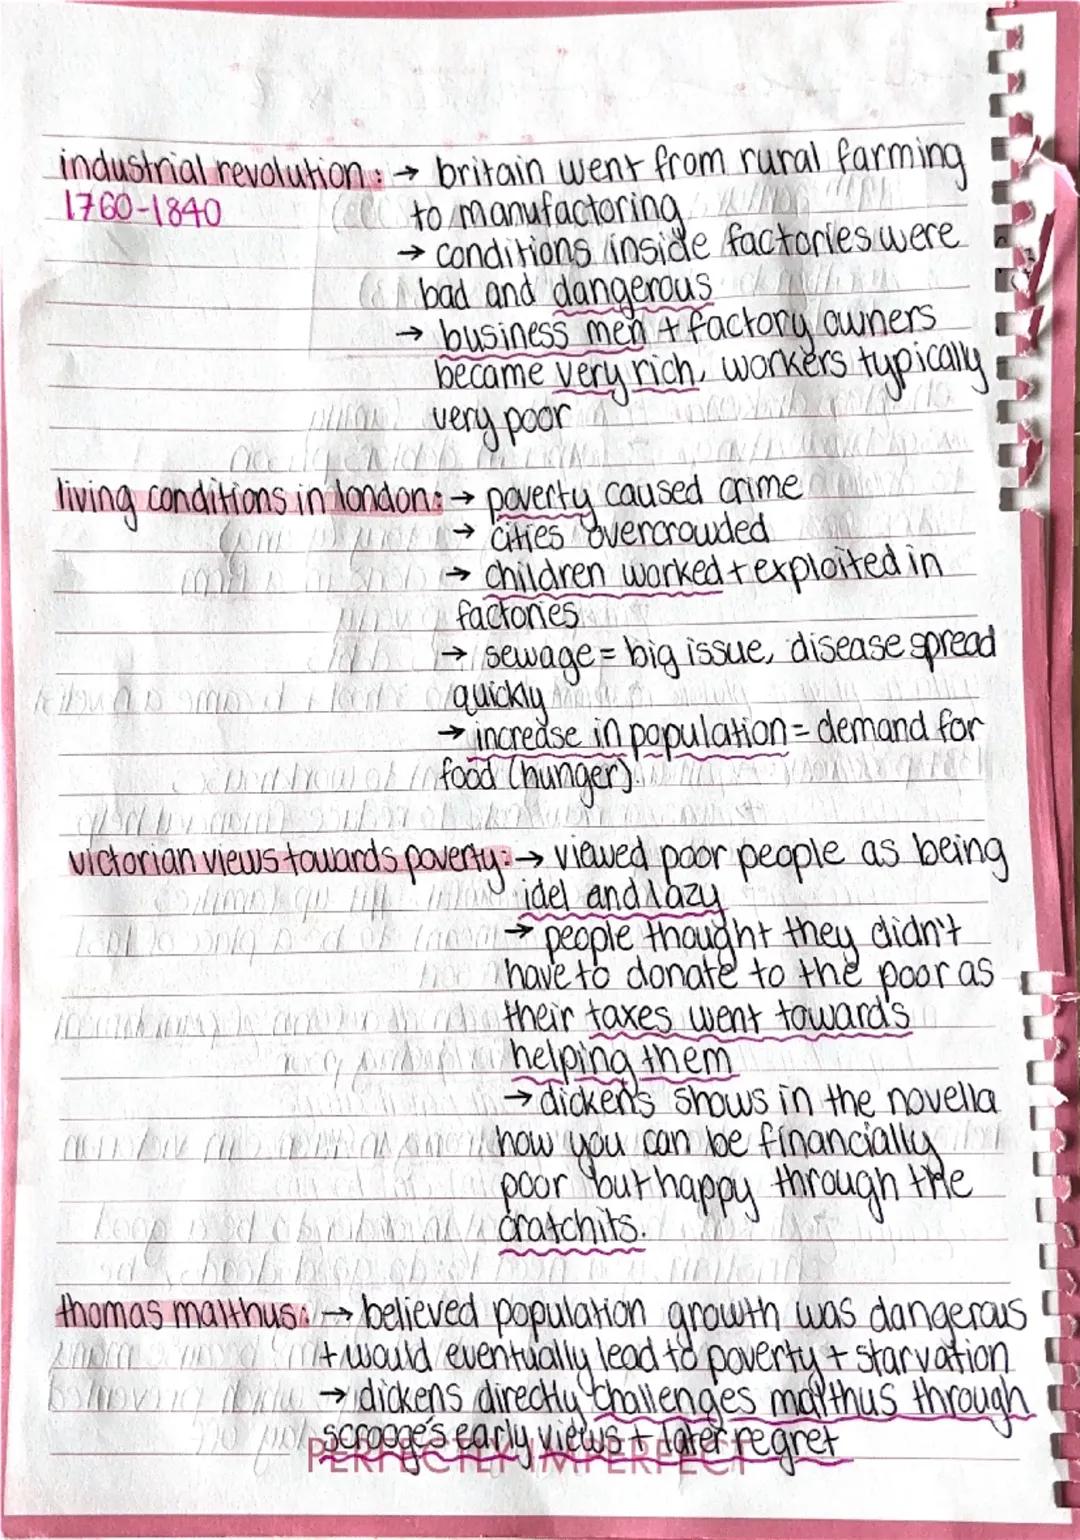 industrial revolution: → britain went from rural farming
1760-1840 to manufactoring
→ conditions inside factories were
bad and dangerous
→ business men + factory owners
became very rich, workers typically
very poor
living conditions in london: → poverty caused crime
→ cities overcrowded
→ children worked + exploited in
factories
→ sewage = big issue, disease spread
quickly
→ increase in population = demand for
food (hunger).
victorian views towards poverty: → viewed poor people as being
idel and lazy
→ people thought they didn't
have to donate to the poor as
their taxes went towards
helping them
→ dickens shows in the novella
how you can be financially
poor but happy through the
cratchits.
thomas malthus: → believed population growth was dangerous
+ would eventually lead to poverty + starvation
→ dickens directly challenges malthus through
scrooge's early views + later regret
PERFECTLY IMPERFECT